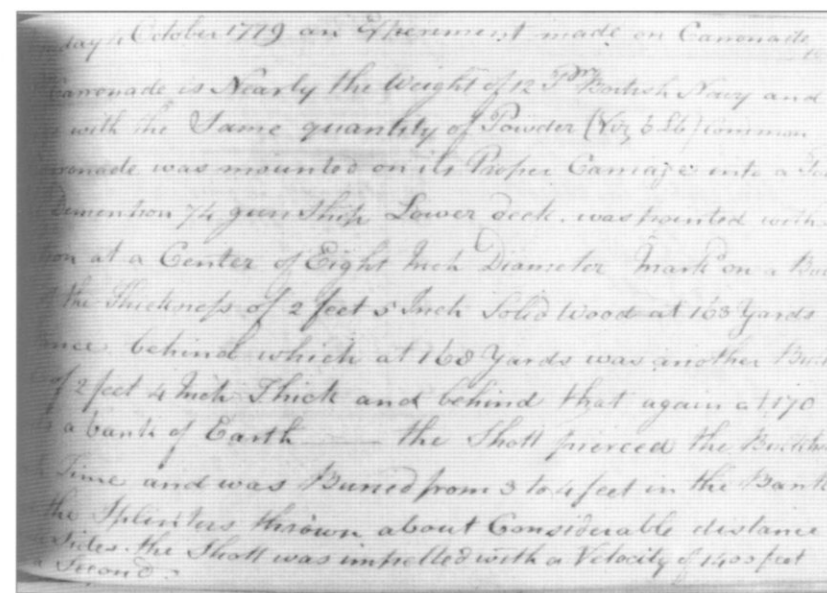 day 4 October 1779 an Experiment made on Carronade
Carronade is Nearly the Weight of 12 Pdr British Navy and
with the Same quantity of Powder (Viz 6 Lb) Common
was mounted on its Proper Carriage into a
Dimention 74 gun Ship Lower deck. was pointed with
at a Center of Eight Inch Diameter Mark'd on a
the Thickness of 2 feet 5 Inch Solid Wood at 163 Yards
behind which at 168 Yards was another
of 2 feet 4 Inch Thick and behind that again at 170
a bank of Earth —— the Shott pierced the
Time and was Buried from 3 to 4 feet in the Bank
the Splinters thrown about Considerable distance
Sides. the Shott was impelled with a Velocity of 1400 feet
a Second.